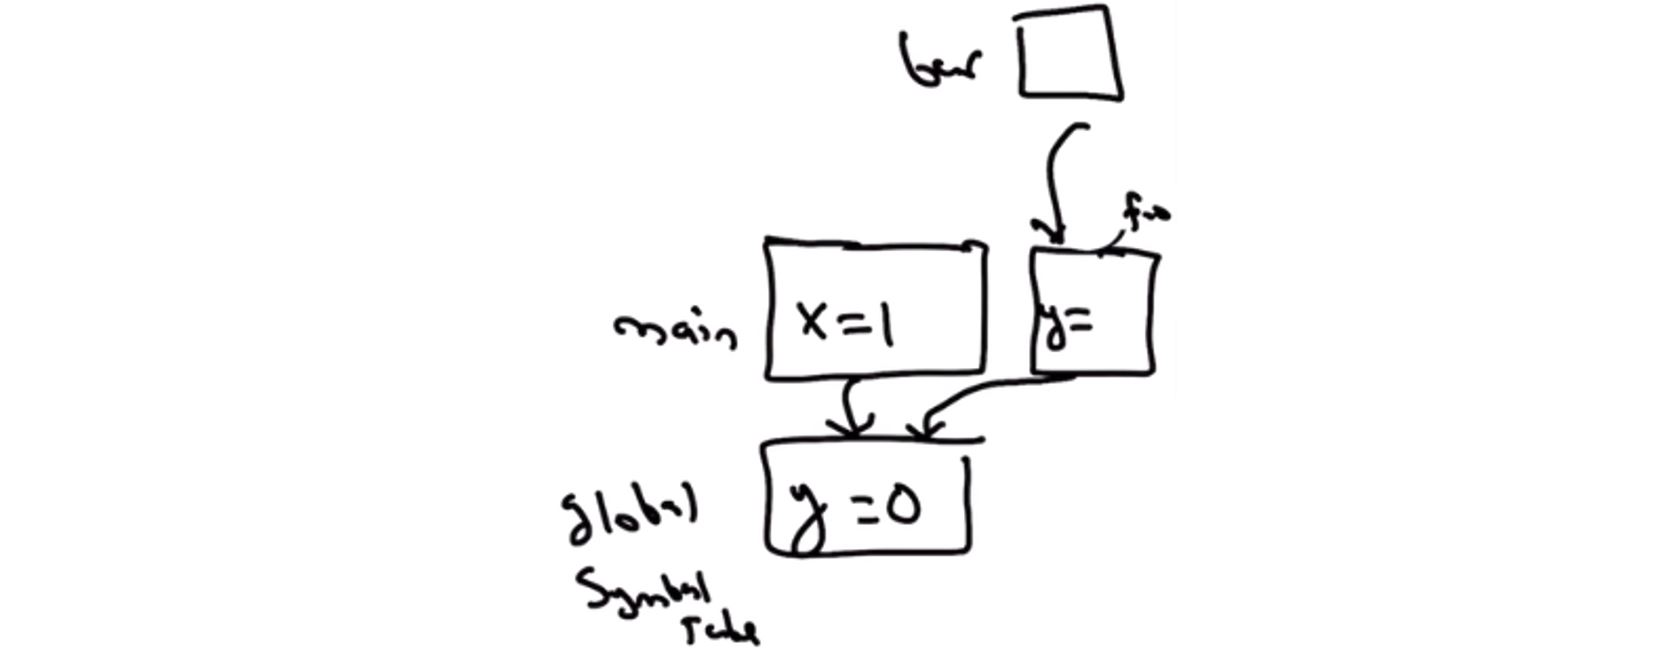 bar
foo
main
x=1
y=
global
y=0
Symbol
Table